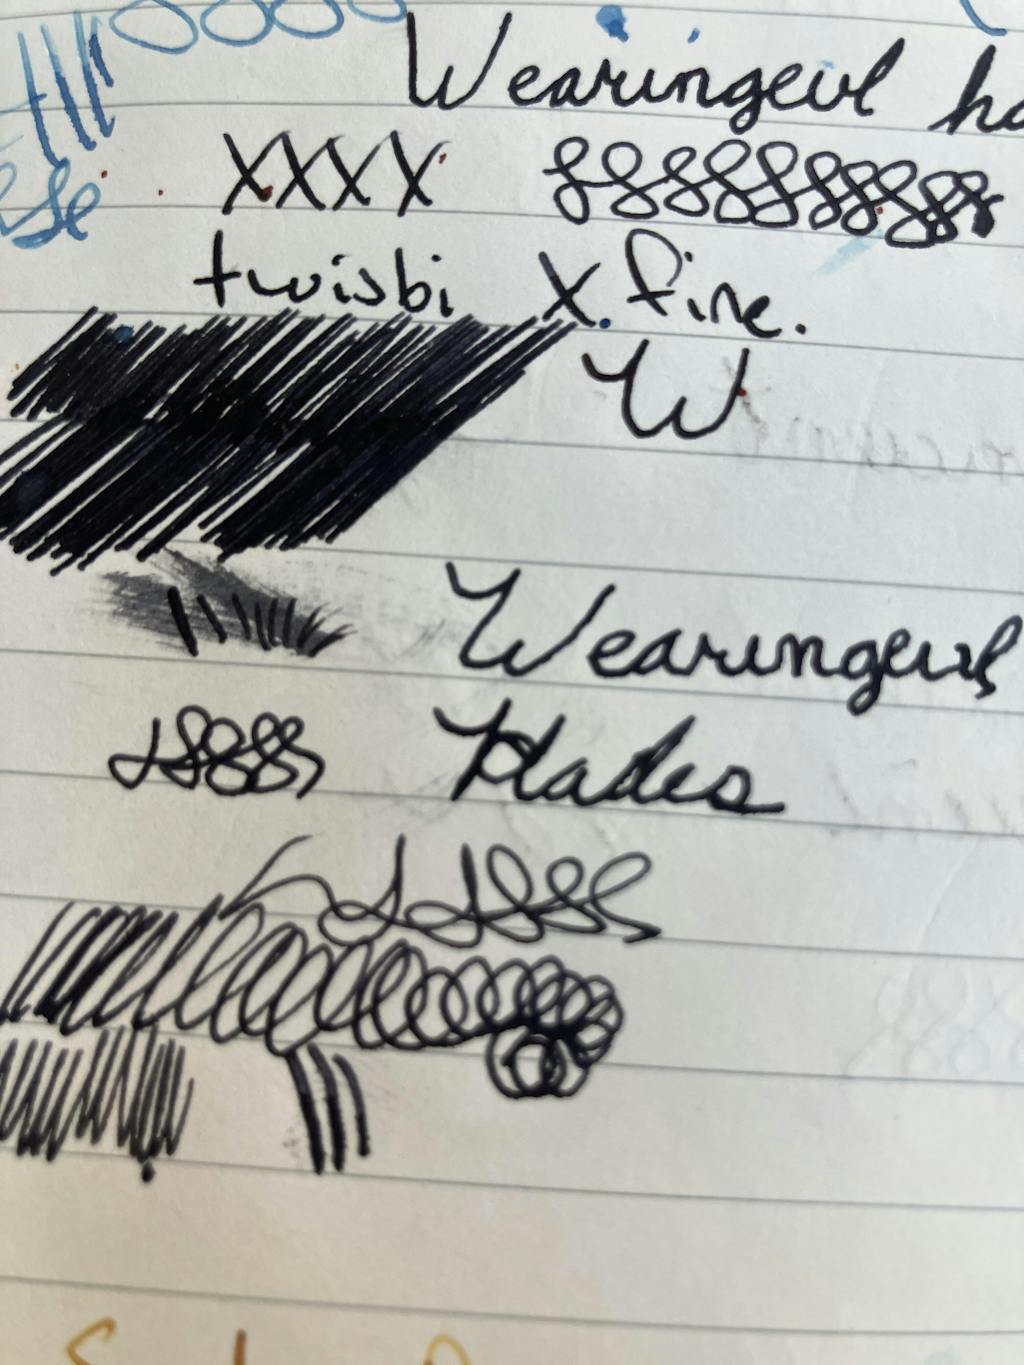 Wearingeul ha
XXXX
twisbi X.fine.
W
Wearingeul
Hades